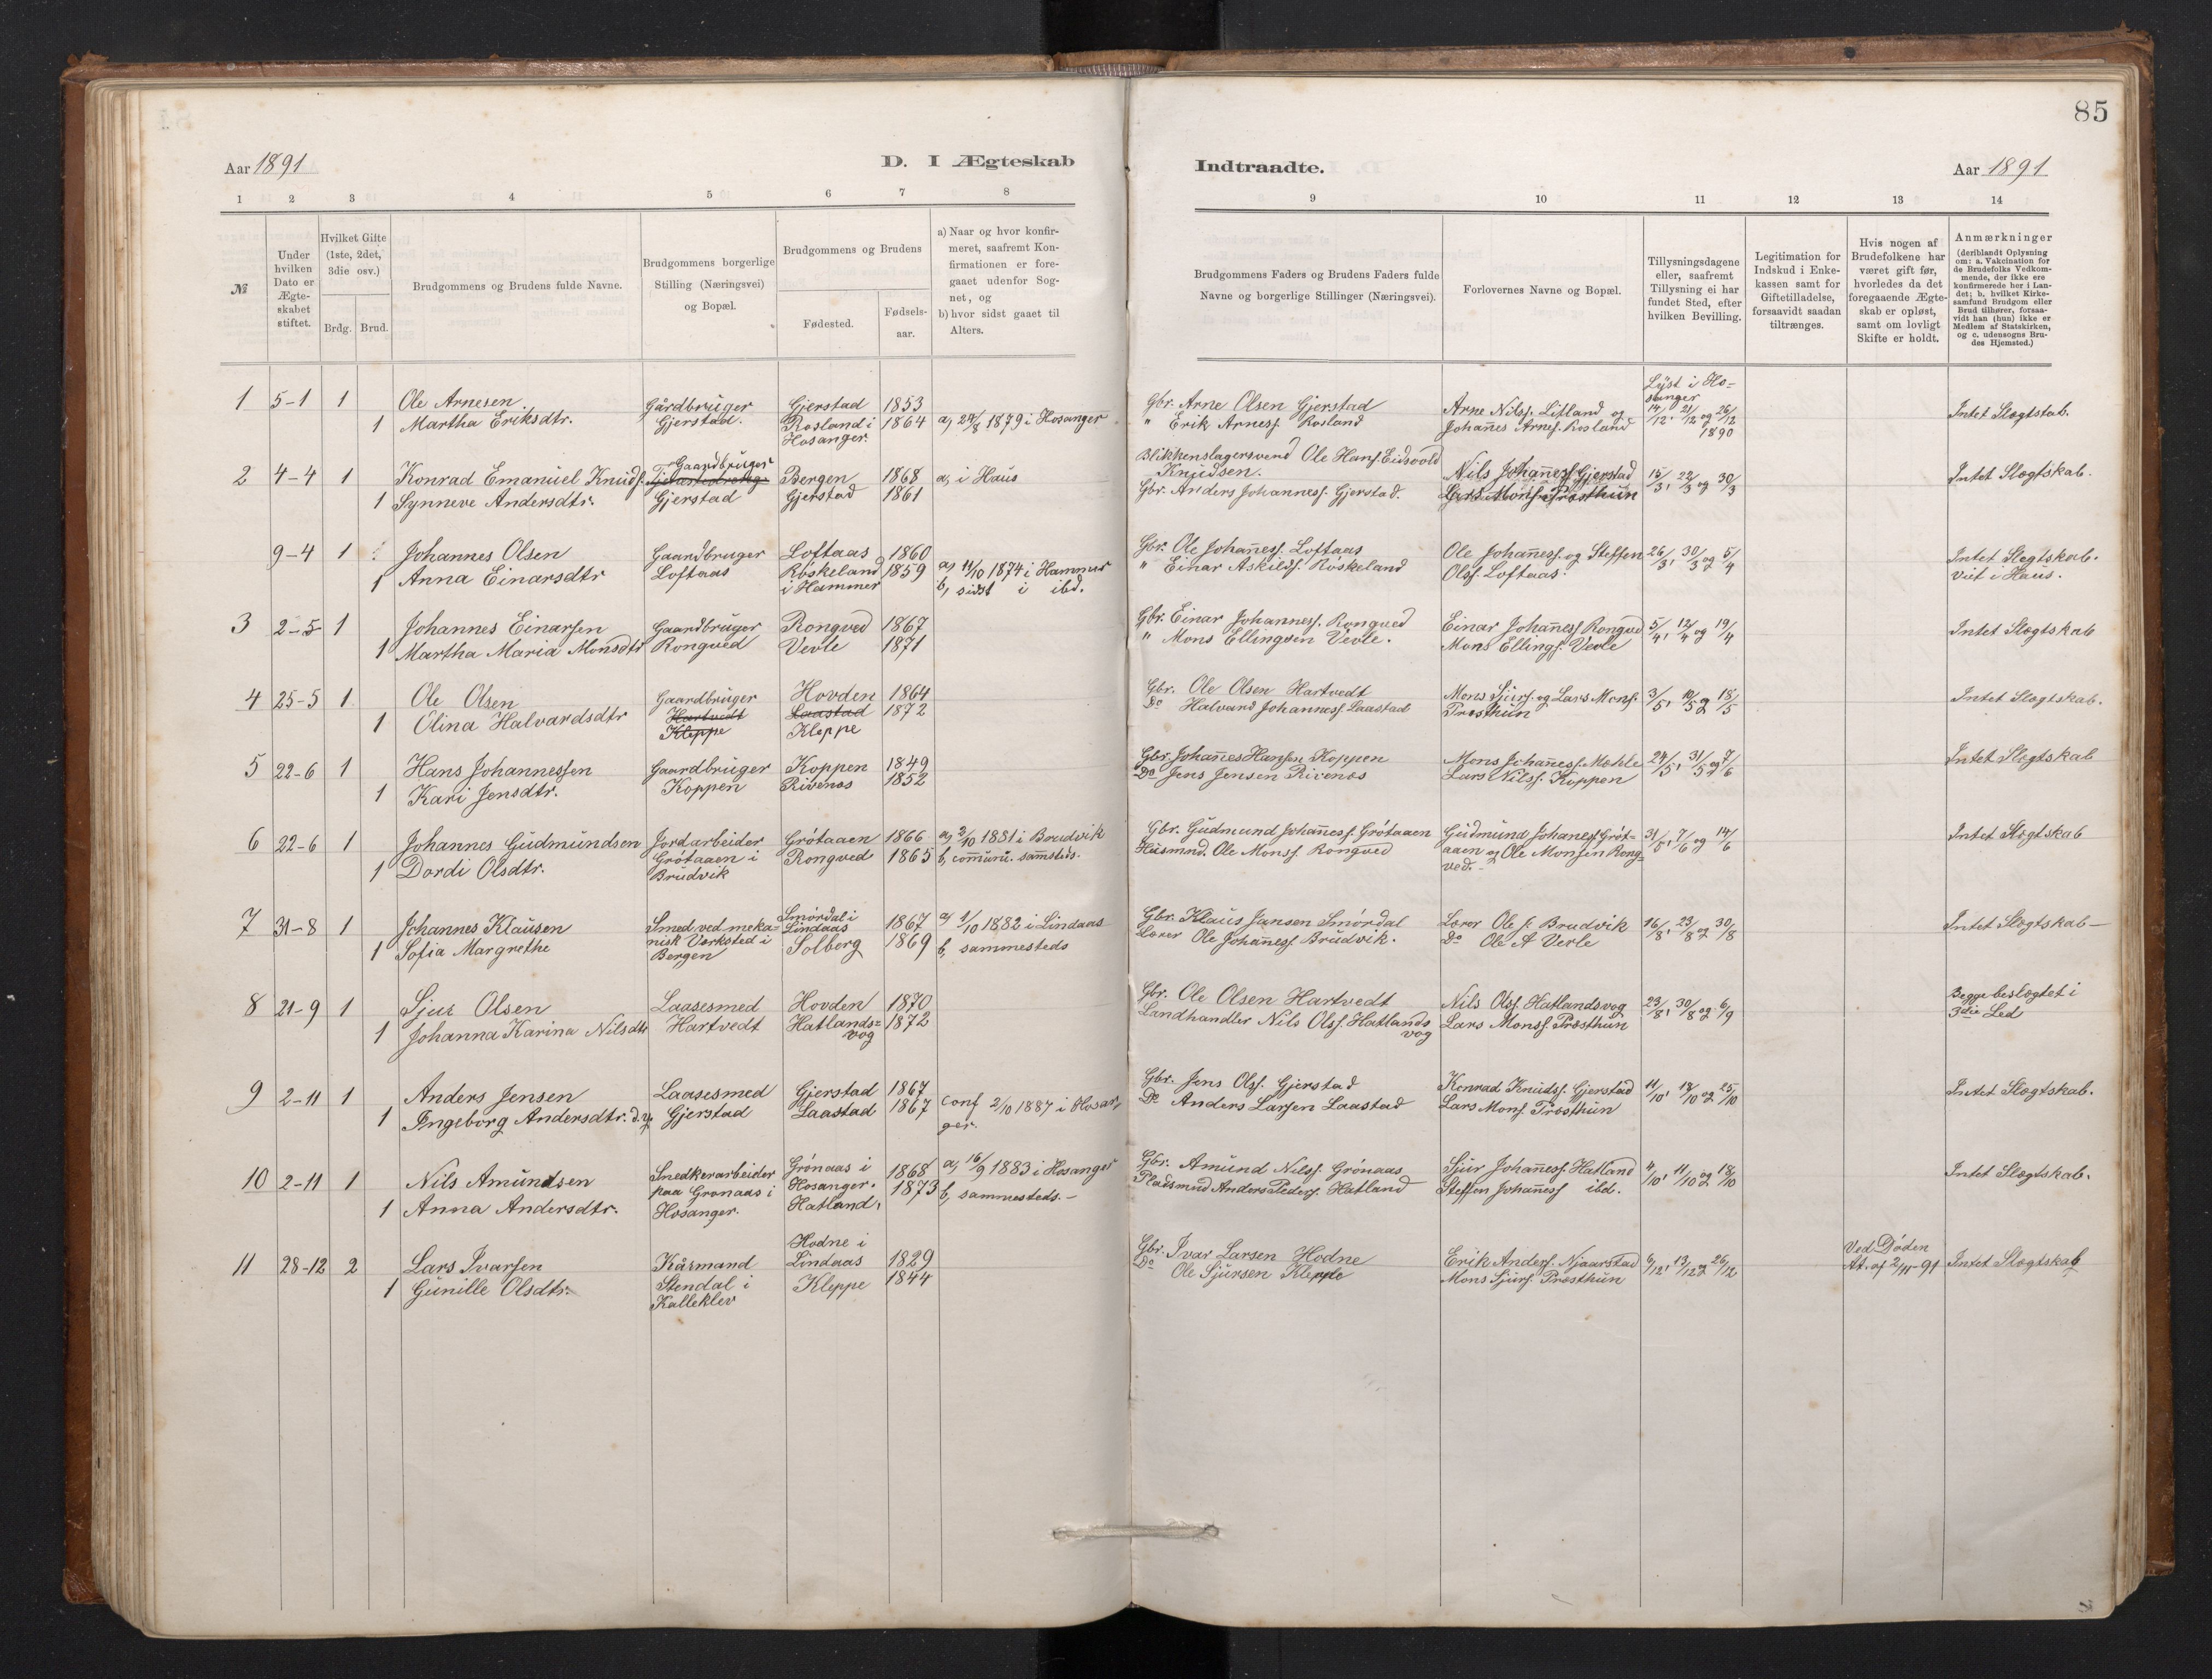 85
Aar 1891
D. I Ægteskab
Indtraadte.
Aar 1891
1 2 3 4 5 6 7 8 9 10 11 12 13 14
№
Under hvilken Dato er Ægteskabet stiftet.
Hvilket Gifte (1ste, 2det, 3die osv.)
Brdg. Brud.
Brudgommens og Brudens fulde Navne.
Brudgommens borgerlige Stilling (Næringsvei) og Bopæl.
Brudgommens og Brudens
Fødested.
Fødselsaar.
a) Naar og hvor konfirmeret, saafremt Konfirmationen er foregaaet udenfor Sognet, og
b) hvor sidst gaaet til Alters.
Brudgommens Faders og Brudens Faders fulde Navne og borgerlige Stillinger (Næringsvei).
Forlovernes Navne og Bopæl.
Tillysningsdagene eller, saafremt Tillysning ei har fundet Sted, efter hvilken Bevilling.
Legitimation for Indskud i Enkekassen samt for Giftetilladelse, forsaavidt saadan tiltrænges.
Hvis nogen af Brudefolkene har været gift før, hvorledes da det foregaaende Ægteskab er opløst, samt om lovligt Skifte er holdt.
Anmærkninger
(deriblandt Oplysning om: a. Vakcination for de Brudefolks Vedkommende, der ikke ere konfirmerede her i Landet; b. hvilket Kirkesamfund Brudgom eller Brud tilhører, forsaavidt han (hun) ikke er Medlem af Statskirken, og c. udensogns Brudes Hjemsted.)
1 5-1 1 Ole Arnesen Gårdbruger Gjerstad 1853 Gbr. Arne Olsen Gjerstad Arne Nilss. Litland og Lyst i Hosanger 14/12, 21/12 og 26/12 1890 Intet Slægtskab.
1 Martha Eriksdtr. Gjerstad. Rosland i Hosanger. 1864 a, 24/8 1879 i Hosanger " Erik Arness. Rosland Johannes Arnes. Rosland
2 4-4 1 Konrad Emanuel Knuds. Gaardbruger Bergen 1868 a, i Haus Blikkenslagersvend Ole Hans. Eidsvold Knudsen. Nils Johanness. Gjerstad 15/3, 22/3 og 30/3 Intet Slægtskab.
1 Synneve Andersdtr. Gjerstad Gjerstad 1861 Gbr. Anders Johanness. Gjerstad. Lars Mons. Præsthun
9-4 1 Johannes Olsen Gaardbruger Loftaas 1860 Gbr. Ole Johanness. Loftaas Ole Johanness. og Steffen 26/3, 30/3 og 5/4 Intet Slægtskab.
1 Anna Einarsdtr Loftaas Røskeland i Hammer 1859 a, 11/10 1874 i Hammer b, sidst i ibd. " Einar Askilds. Røskeland Olss. Loftaas. Viet i Haus.
3 2-5 1 Johannes Einarsen Gaardbruger Rongved 1867 Gbr. Einar Johanness. Rongved Einar Johanness Rongved 5/4, 12/4 og 19/4 Intet Slægtskab
1 Martha Maria Monsdtr Rongved Vevle 1871 " Mons Ellingsen Vevle. Mons Ellings. Vevle
4 25-5 1 Ole Olsen Gaardbruger Hovden 1864 Gbr. Ole Olsen Hartvedt Mons Sjurs. og Lars Mons. 3/5, 10/5 og 18/5 Intet Slægtskab.
1 Olina Halvardsdtr Hartvedt Kleppe Laastad Kleppe 1872 Do Halvard Johanness. Laastad Præsthun
5 22-6 1 Hans Johannessen Gaardbruger Koppen 1849 Gbr. Johannes Hansen Koppen Mons Johanness. Mæhle 24/5, 31/5 og 7/6 Intet Slægtskab
1 Kari Jensdtr. Koppen Rivenæs 1852 Do Jens Jensen Rivenæs Lars Nilss. Koppen
6 22-6 1 Johannes Gudmundsen Jordarbeider Grøtaaen 1866 a, 2/10 1881 i Brudvik Gbr. Gudmund Johanness. Grøtaaen Gudmund Johaness Grøt- 31/5, 7/6 og 14/6 Intet Slægtskab
1 Dordi Olsdtr. Grøtaaen i Brudvik Rongved 1865 b, communi. sammsteds. Husmnd. Ole Monss. Rongved aaen og Ole Monsen Rongved.
7 31-8 1 Johannes Klausen Smed ved meka- Smørdal i Lindaas 1867 a, 1/10 1882 i Lindaas Gbr. Klaus Jansen Smørdal Lærer Ole J. Brudvik 16/8, 23/8 og 30/8 Intet Slægtskab
1 Sofia Margrethe nisk Værksted i Bergen Solberg 1869 b, sammesteds Lærer Ole Johanness Brudvik. Do Ole A Vevle
8 21-9 1 Sjur Olsen Laasesmed Hovden 1870 Gbr. Ole Olsen Hartvedt Nils Olss. Hatlandsvog 23/8, 30/8 og 6/9 Begge beslægtet i 3die Led
1 Johanna Karina Nilsdtr Hartvedt Hatlandsvog 1872 Landhandler Nils Olss. Hatlandsvog Lars Monss. Præsthun
9 2-11 1 Anders Jensen Laasesmed Gjerstad 1867 Gbr. Jens Olss. Gjerstad Konrad Knudss. Gjerstad 11/10, 18/10 og 25/10 Intet Slægtskab.
1 Ingeborg Andersdtr. d. y. Gjerstad Laastad 1867 Conf 2/10 1887 i Hosanger. Do Anders Larsen Laastad Lars Mons. Præsthun
10 2-11 1 Nils Amundsen Snedkerarbeider Grønaas i Hosanger. 1868 a, 16/9 1883 i Hosanger Gbr. Amund Nilss. Grønaas Sjur Johanness. Hatland 4/10, 11/10 og 18/10 Intet Slægtskab.
1 Anna Andersdtr. paa Grønaas i Hosanger. Hatland. 1873 b, sammesteds. Pladsmnd Anders Peders. Hatland Steffen Johanness ibd.
11 28-12 2 Lars Ivarsen Kårmand Hodne i Lindaas 1829 Gbr. Ivar Larsen Hodne Erik Anderss. Njaarstad 6/12, 13/12 og 26/12 Ved Døden At. af 2/11-91 Intet Slægtskab
1 Gunille Olsdtr. Stendal i Kalleklev Kleppe 1844 Do Ole Sjursen Kleppe Mons Sjurs. Præsthun